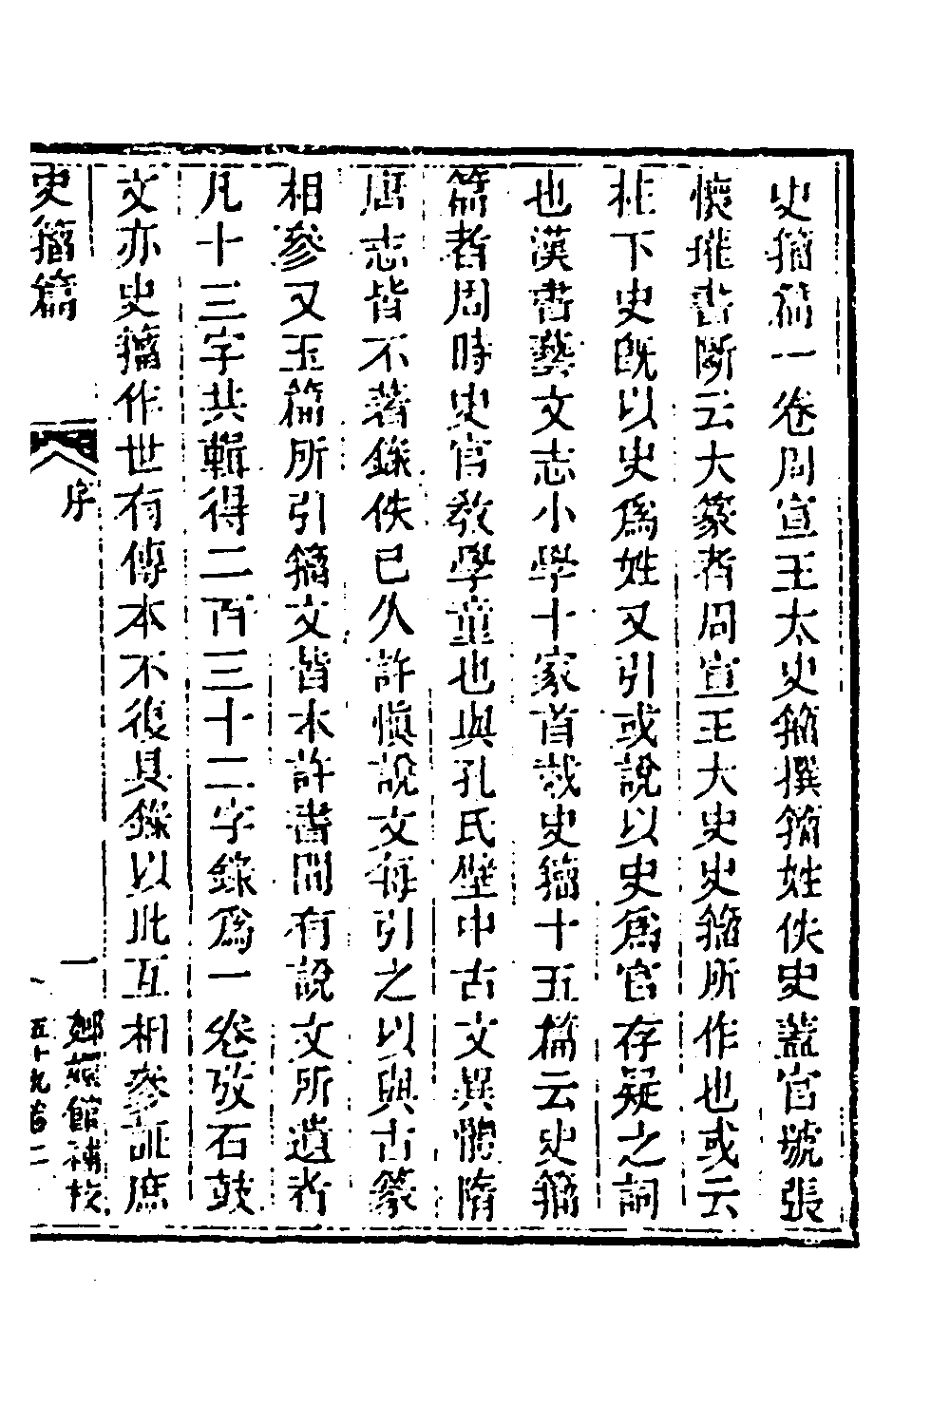 史籀篇一卷周宣王太史籀撰籀姓佚史蓋官號張
懷瓘書斷云大篆者周宣王大史史籀所作也或云
柱下史既以史爲姓又引或說以史爲官存疑之詞
也漢書藝文志小學十家首載史籀十五篇云史籀
篇者周時史官教學童也與孔氏壁中古文異體隋
唐志皆不著錄佚已久許愼說文每引之以與古篆
相參又玉篇所引籀文皆本許書間有說文所遺者
凡十三字共輯得二百三十二字錄爲一卷攷石鼓
文亦史籀作世有傳本不復具錄以此互相參証庶
史籀篇
序
一
嫏嬛館補校